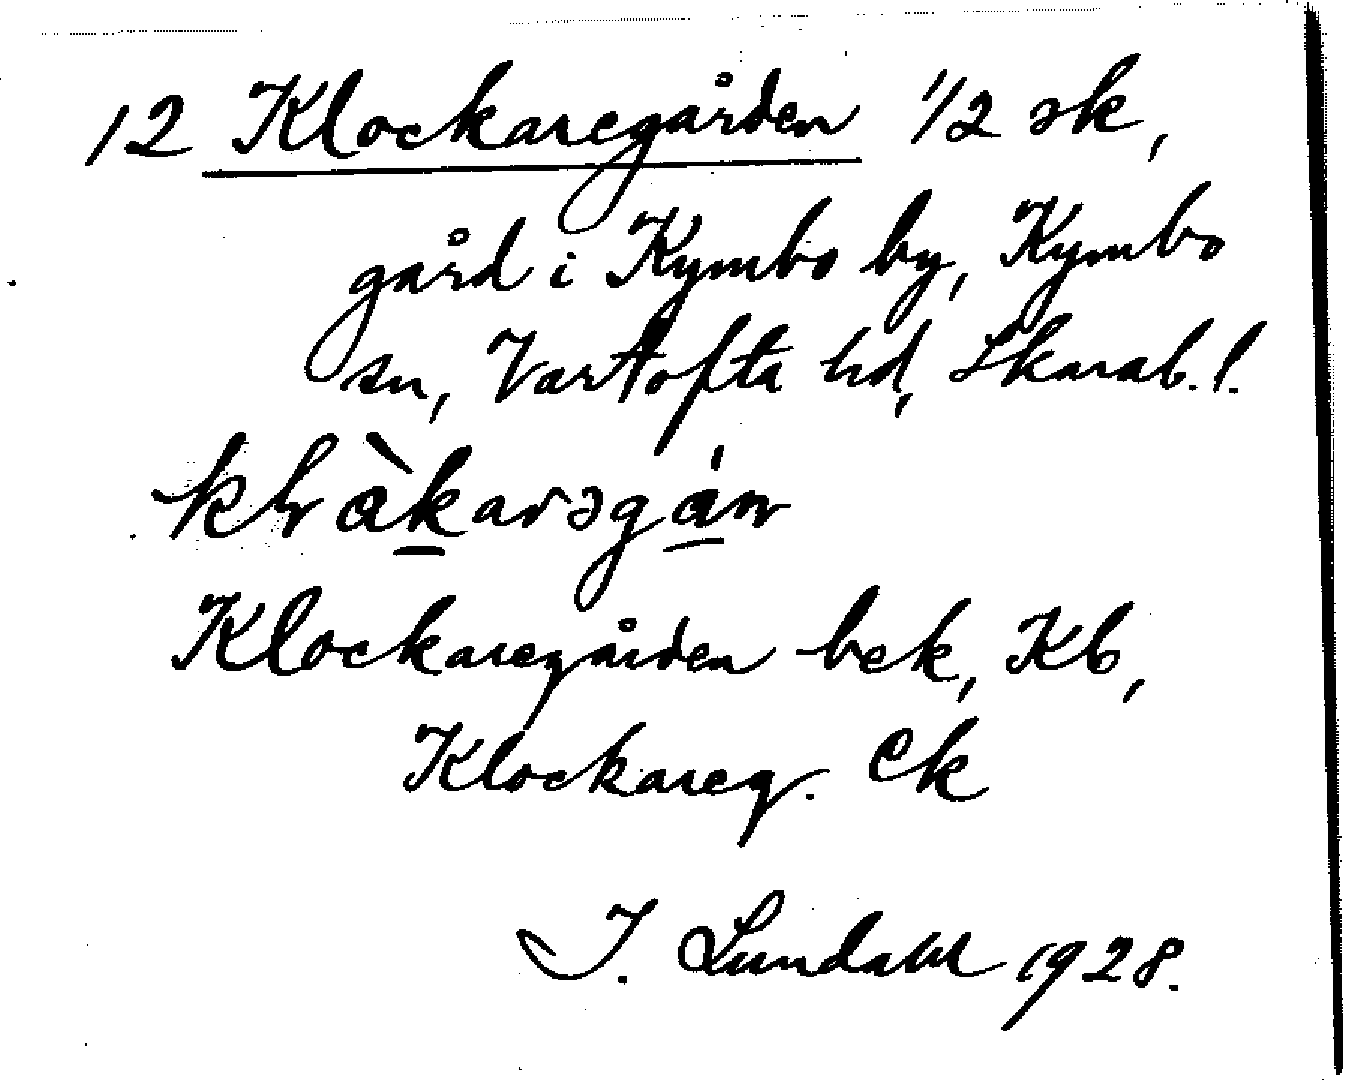 12 Klockaregården 1/2 sk,
gård i Kymbo by, Kymbo
sn, Vartofta hd, Skarab. l.
Klockaregården bek, Kb,
Klockareg. Ek
I. Lundahl 1928.